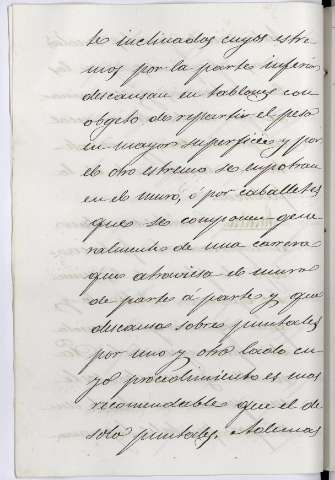 te inclinados cuyos estre
mos por la parte inferior
descansan en tablones con
obgeto de repartir el peso
en mayor superficie y por
el otro estremo se enpotran
en el muro, ó por caballetes
que se componen gene
ralmente de una carrera
que atraviesa el muro
de parte á parte y que
descansa sobre puntales
por uno y otro lado cu
yo procedimiento es mas
recomendable que el de
solo puntales. Ademas